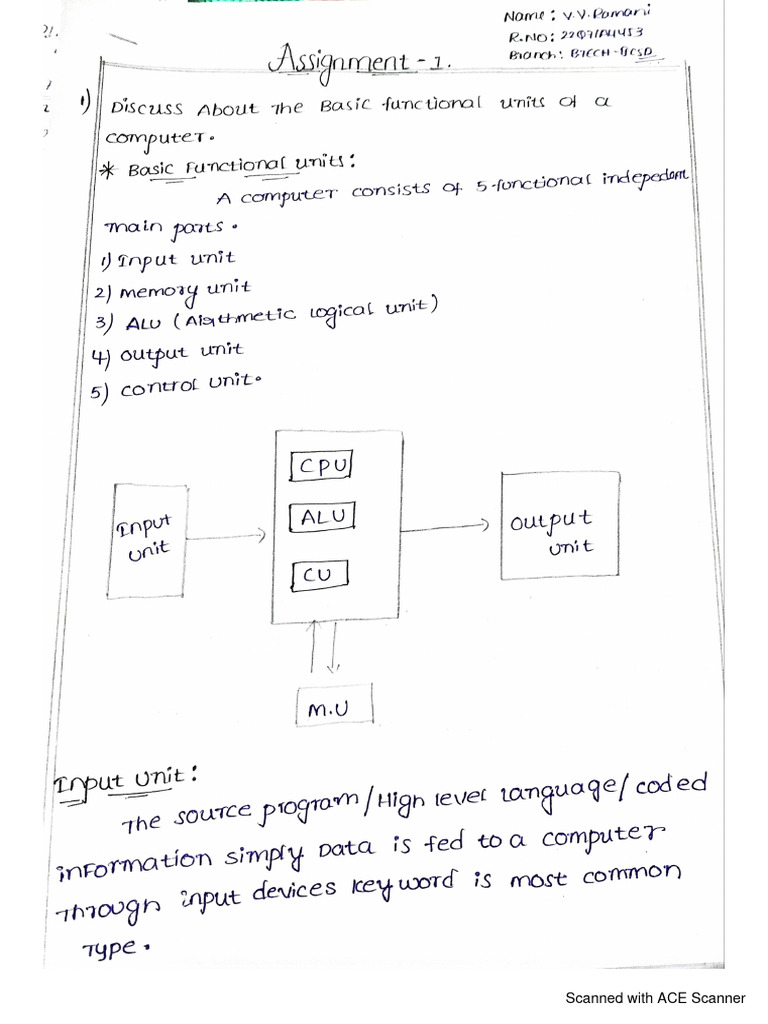 Name: V.V. Ramani
R.NO:
Branch: BTECH-
Assignment-1.
1) Discuss About the Basic functional units of a
computer.
* Basic Functional units:
A computer consists of 5-functional indepedant
main parts.
1) Input unit
2) memory unit
3) ALU (Arigthmetic logical unit)
4) output unit
5) control unit.
CPU
ALU
CU
Input
unit
output
unit
M.U
Input unit:
The source program/High level language/coded
information simply Data is fed to a computer
Through input devices keyword is most common
Type.
Scanned with ACE Scanner